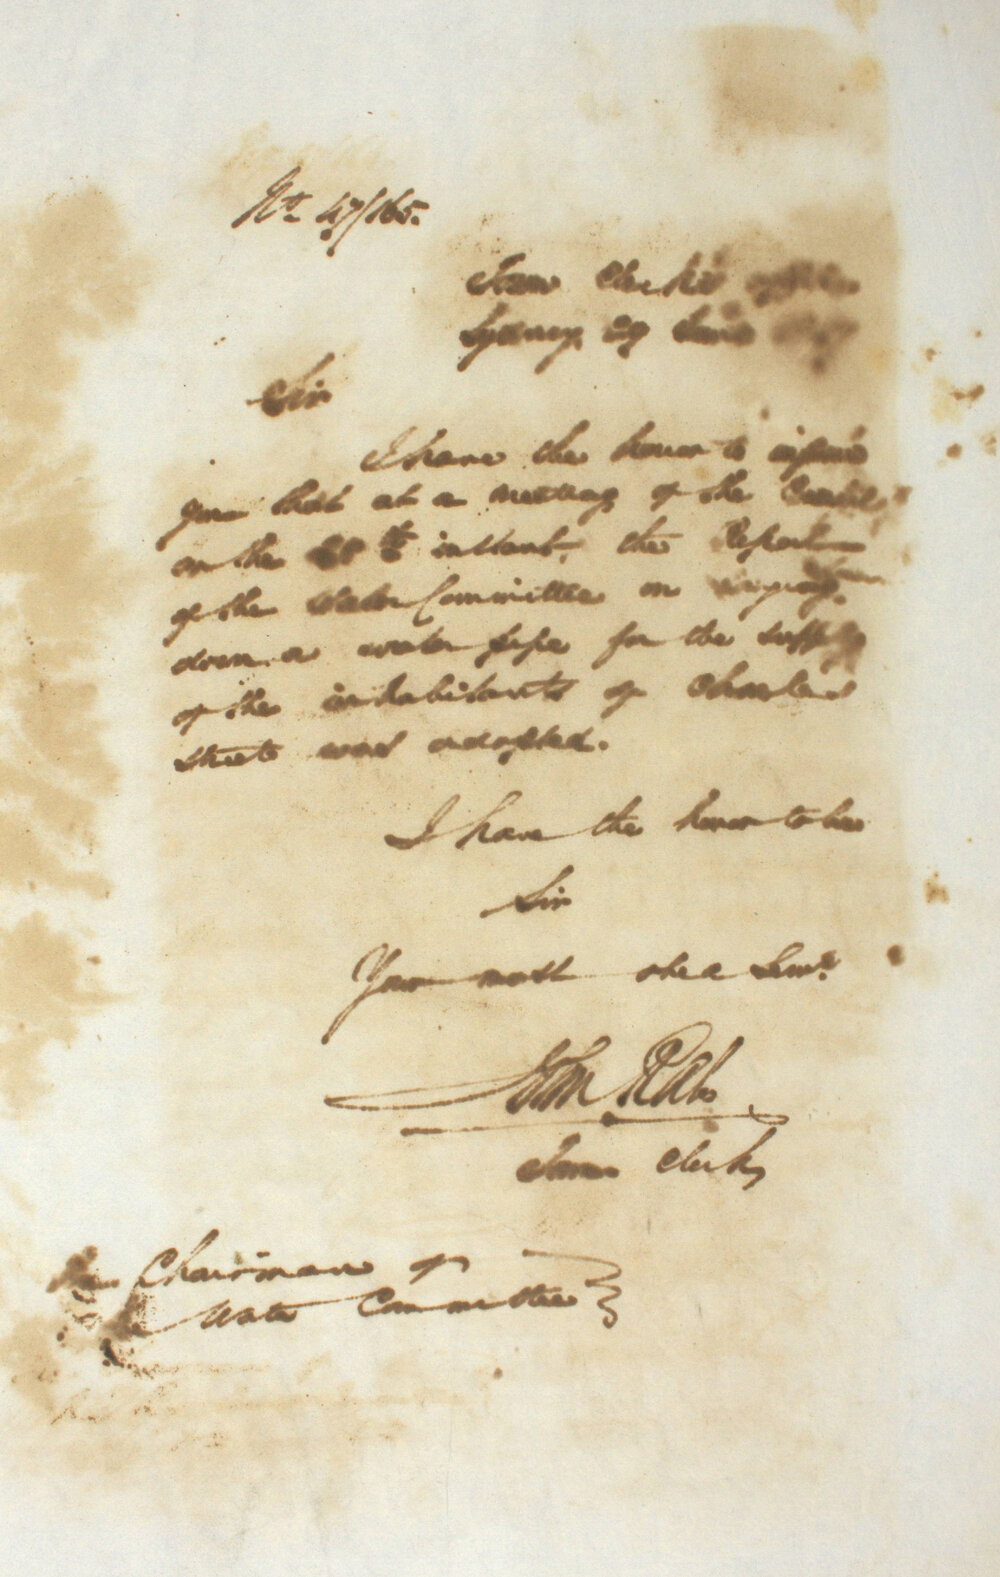 No. 47/165.
Town Clerks Office
Sydney 29 June
Sir
I have the honor to inform
you that at a meeting of the Council
on the 28th instant the Report
of the Water Committee on laying
down a water pipe for the supply
of the inhabitants of Charles
Streets was adopted.
I have the honor to be
Sir
Your most obed Servt
John Rae
Town Clerk
The Chairman of
the Water Committee